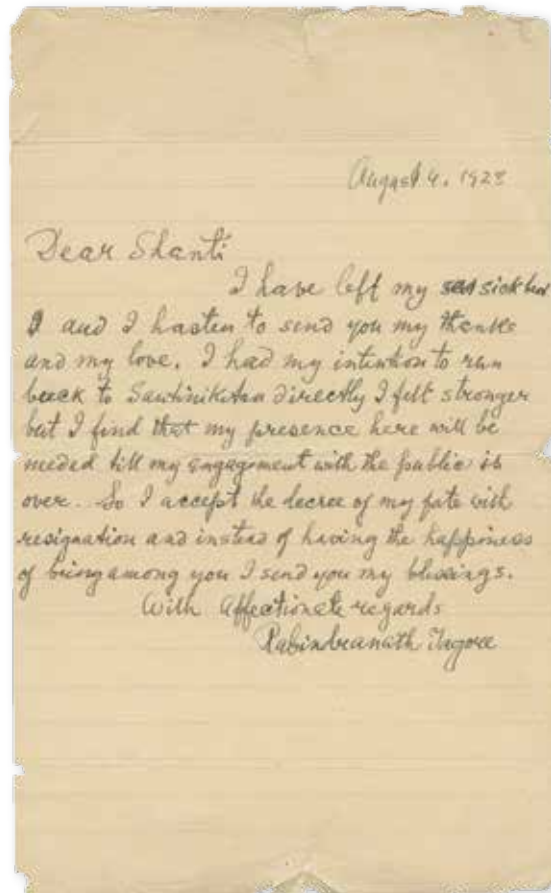 August 4. 1928
Dear Shanti
I have left my sick bed
and I hasten to send you my thanks
and my love. I had my intention to run
back to Santiniketan directly I felt stronger
but I find that my presence here will be
needed till my engagement with the public is
over. So I accept the decree of my fate with
resignation and instead of having the happiness
of being among you I send you my blessings.
With affectionate regards
Rabindranath Tagore